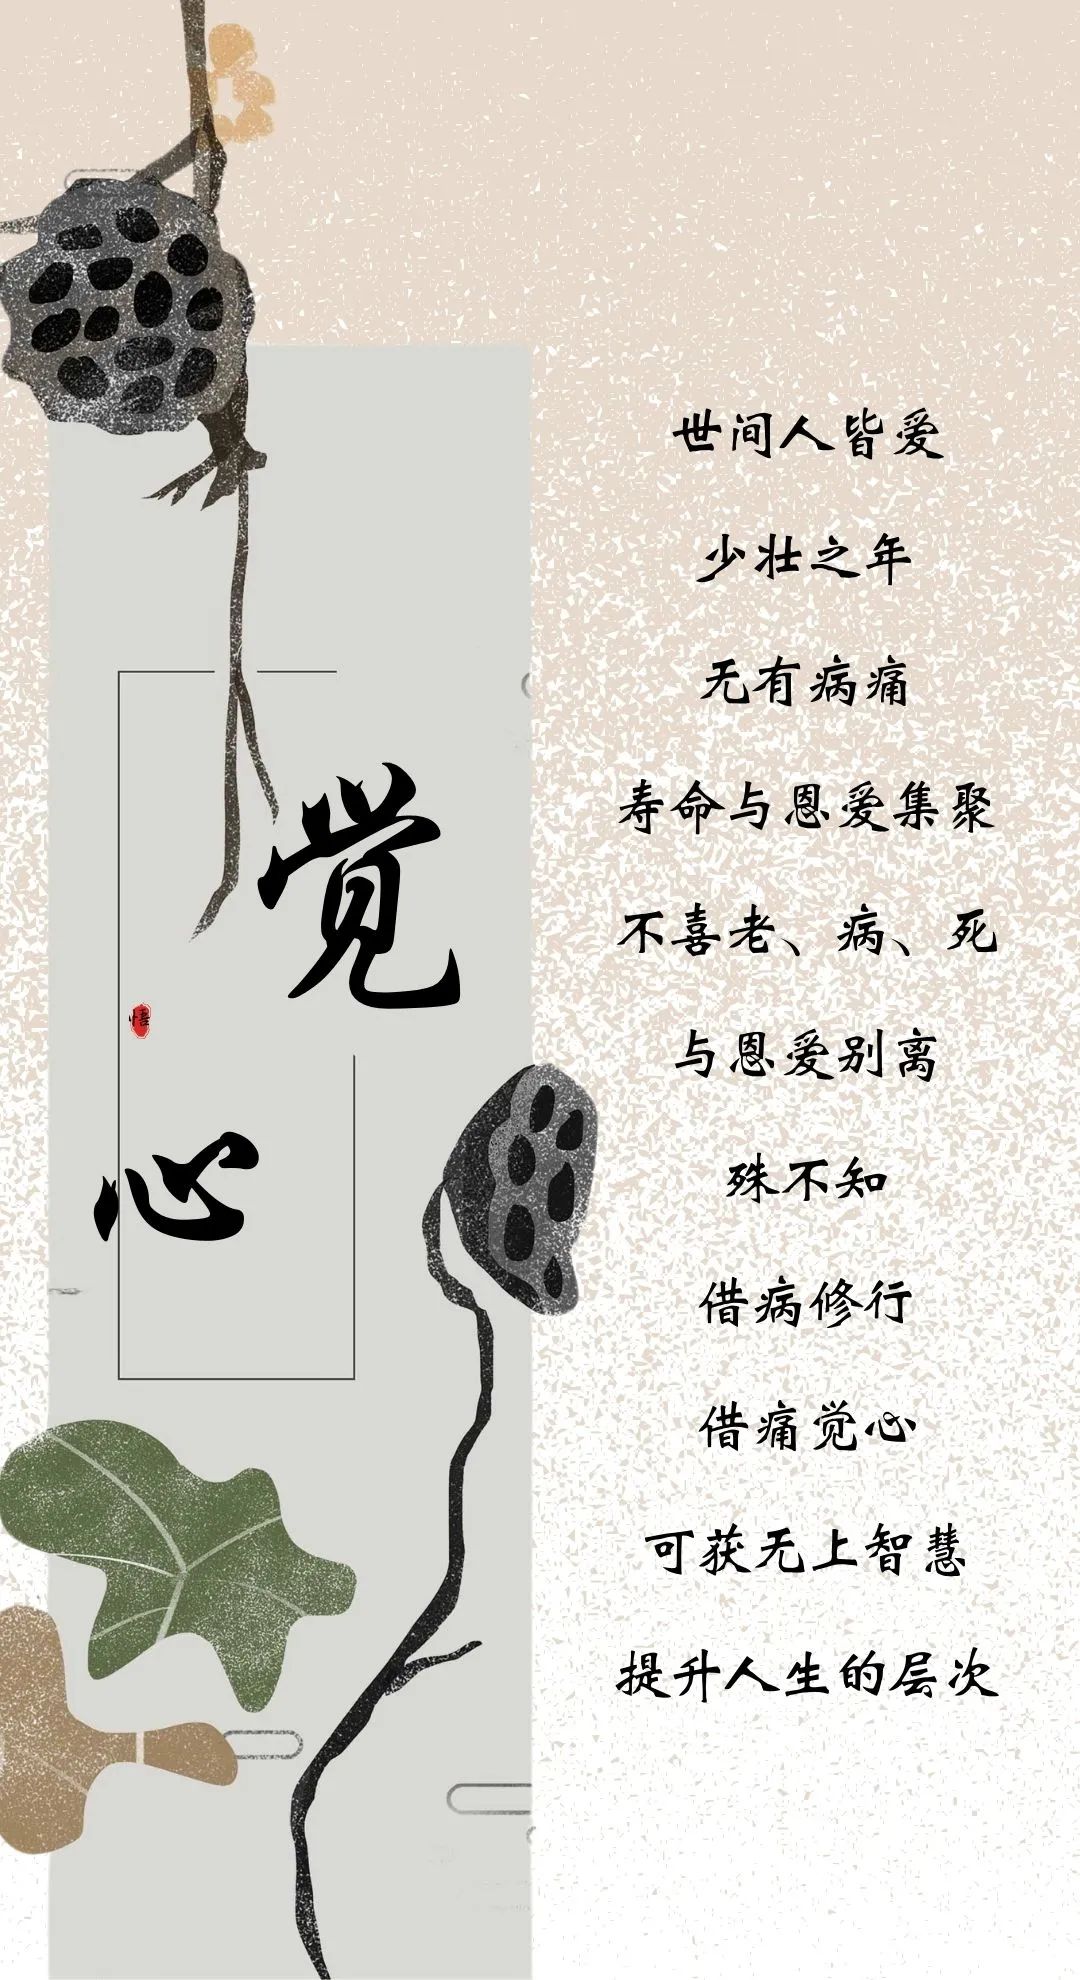 觉
悟
心
世间人皆爱
少壮之年
无有病痛
寿命与恩爱集聚
不喜老、病、死
与恩爱别离
殊不知
借病修行
借痛觉心
可获无上智慧
提升人生的层次